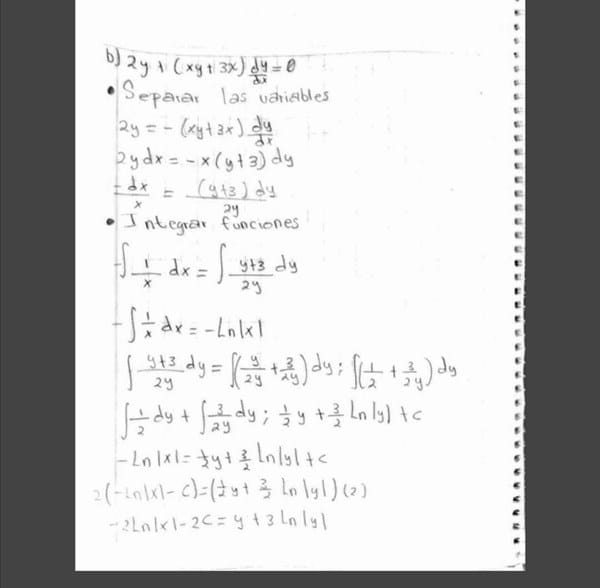 b) 2y + (xy + 3x) dy/dx = 0
• Separar las variables
2y = - (xy + 3x) dy/dx
2y dx = - x (y + 3) dy
- dx/x = (y + 3) dy/2y
• Integrar funciones
-∫ 1/x dx = ∫ y+3/2y dy
-∫ 1/x dx = - Ln|x|
∫ y+3/2y dy = ∫(y/2y + 3/2y) dy ; ∫(1/2 + 3/2y) dy
∫ 1/2 dy + ∫ 3/2y dy ; 1/2 y + 3/2 Ln|y| + c
- Ln|x| = 1/2 y + 3/2 Ln|y| + c
2(-Ln|x| - C) = (1/2 y + 3/2 Ln|y|)(2)
-2Ln|x| - 2C = y + 3 Ln|y|